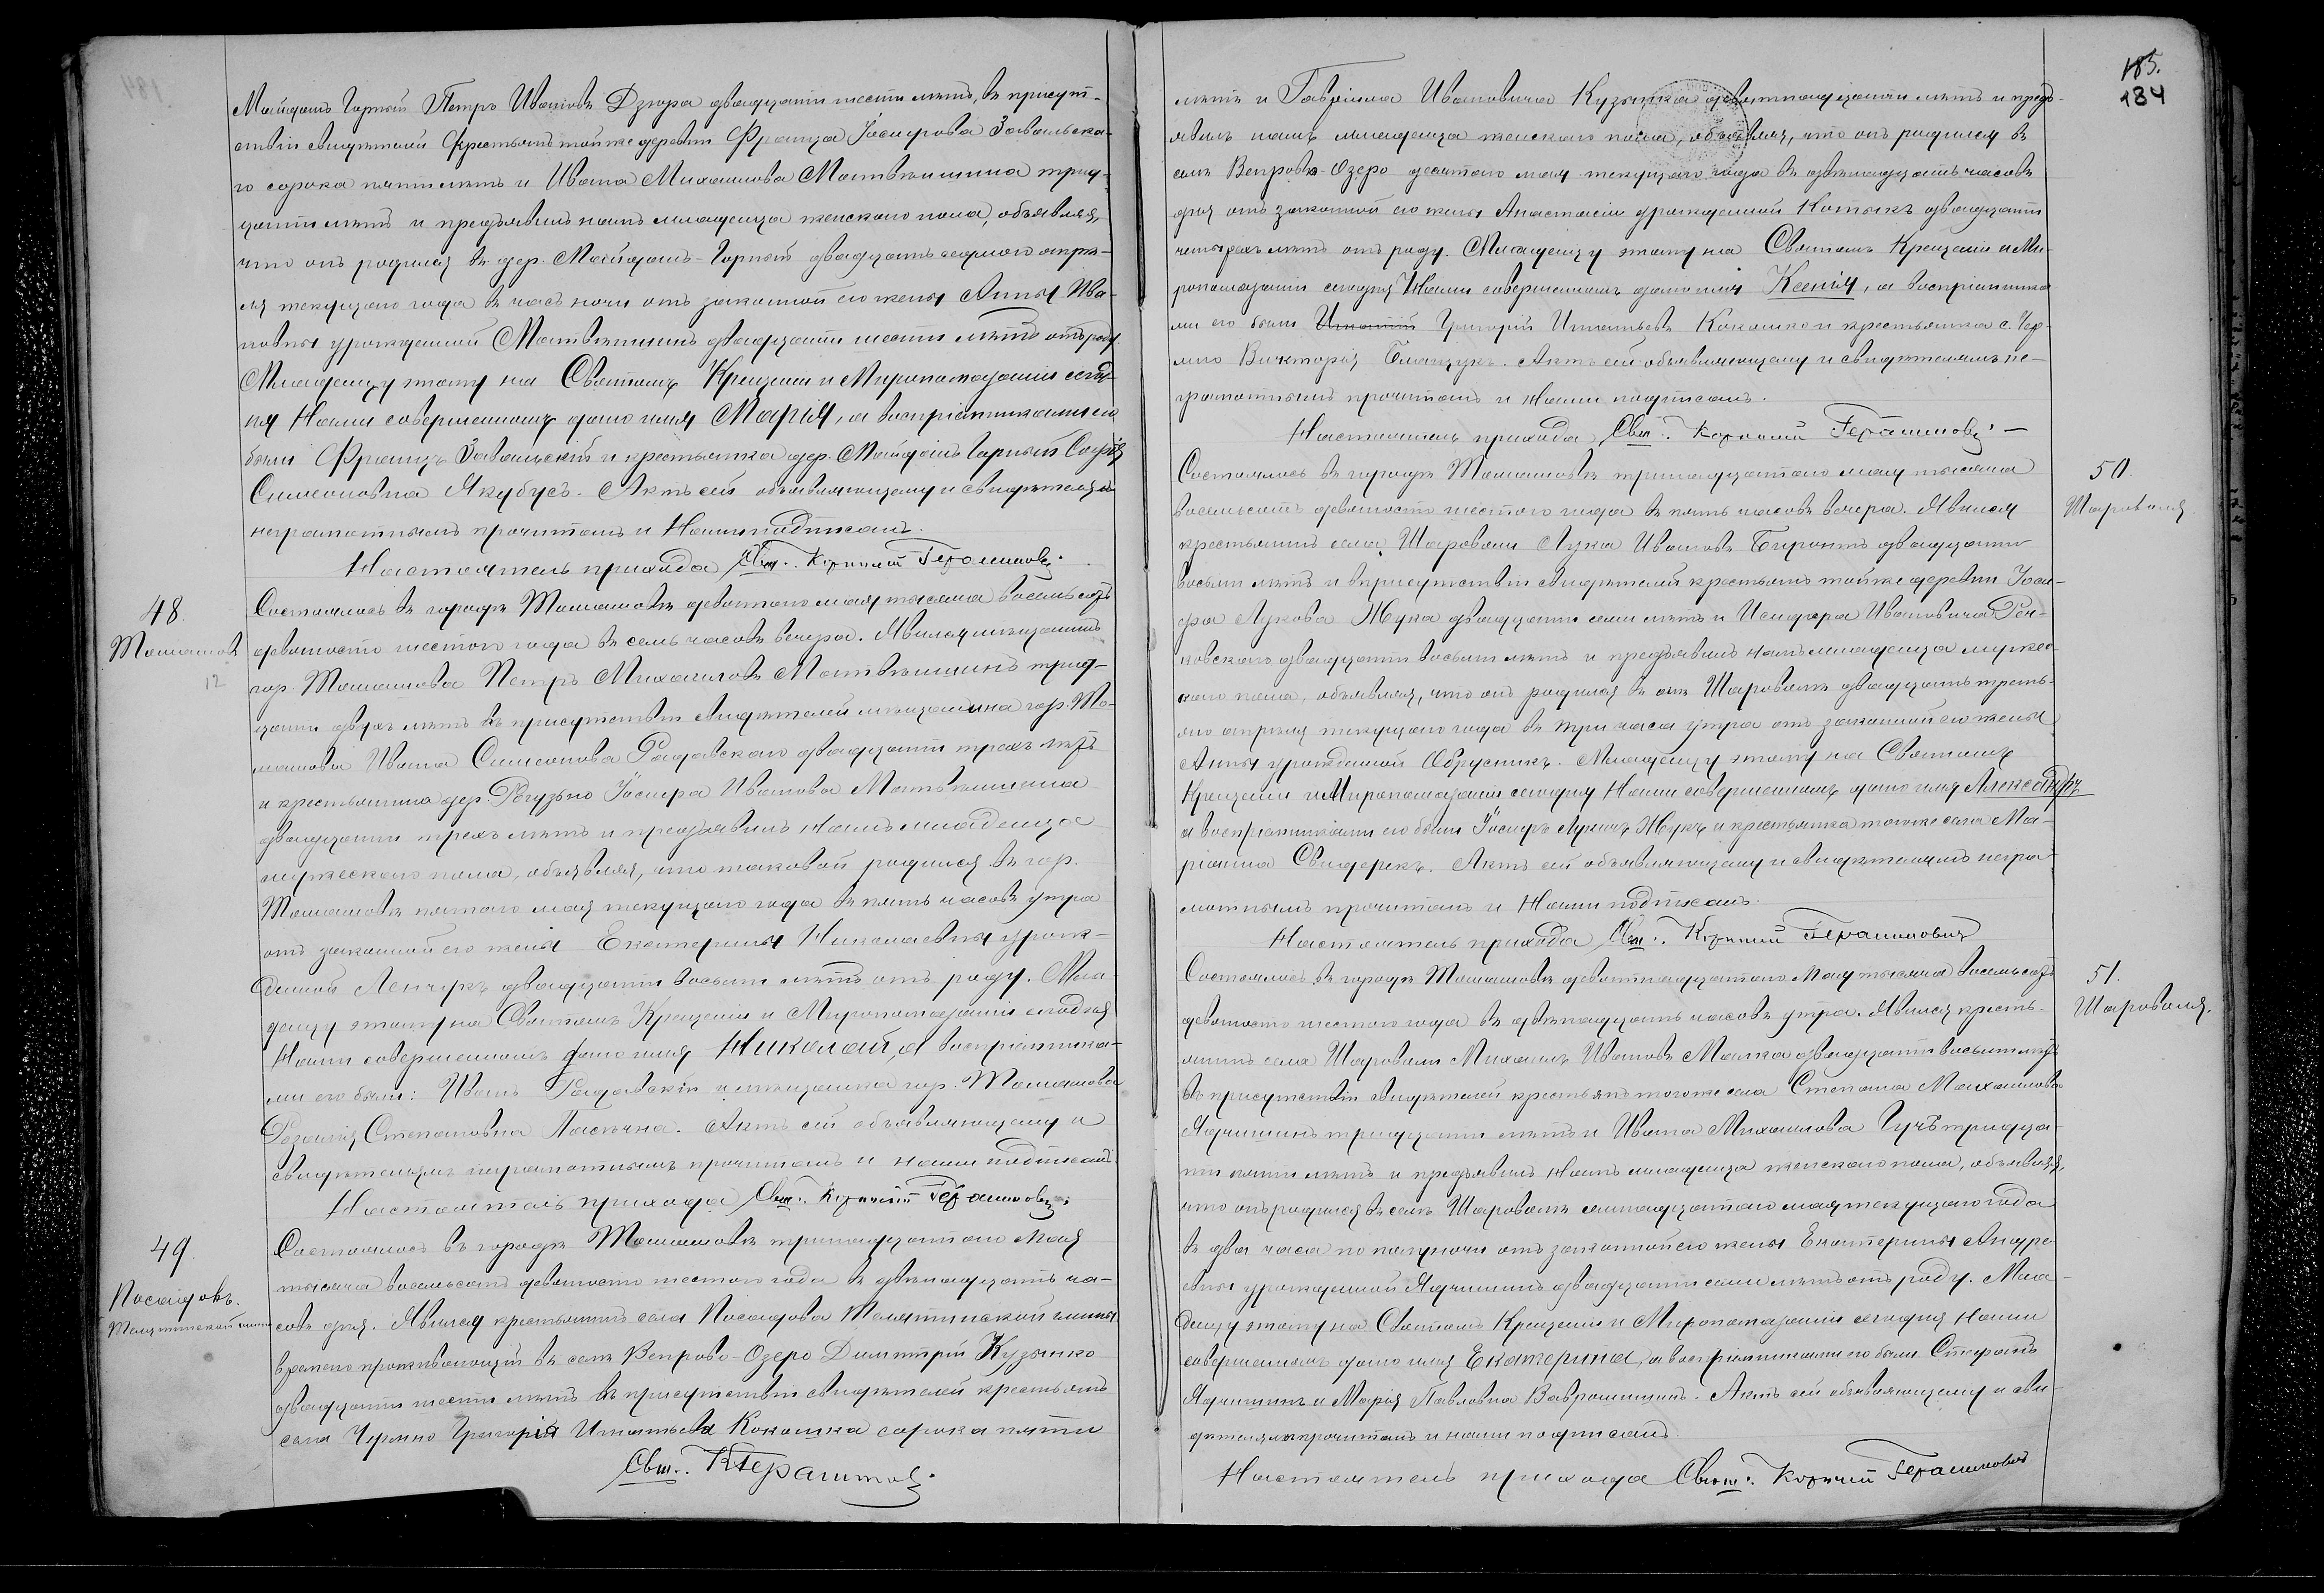 Майданъ Горный Петръ Ивановъ Дзюра двадцати шести лѣтъ, въ присут-
ствіи свидѣтелей крестьянъ той же деревни Франца Іосифова Завальска-
го сорока пяти лѣтъ и Ивана Михаилова Матвѣишина трид-
цати лѣтъ и предъявилъ намъ младенца женскаго пола, объявляя,
что онъ родился въ дер. Майданъ-Горный двадцать седьмого апрѣ-
ля текущаго года въ часъ ночи отъ законной его жены Анны Ива-
новны урожденной Матвѣишинъ двадцати шести лѣтъ отъ роду
Младенцу этому на Святомъ Крещеніи и Мѵропомазаніи сегод-
ня Нами совершенномъ дано имя Марія, а воспріемниками его
были Францъ Завальскій и крестьянка дер. Майданъ Горный Софія
Симеоновна Якубусъ. Актъ сей объявляющему и свидѣтелямъ
неграмотнымъ прочитанъ и Нами подписанъ.
Настоятель прихода Свщ. Корнилій Герасимовъ.
48.
Томашовъ
12
Состоялось въ городѣ Томашовѣ девятого мая тысяча восемьсотъ
девяносто шестого года въ семь часовъ вечера. Явился мѣщанинъ
гор. Томашова Петръ Михаиловъ Матвѣишинъ трид-
цати двухъ лѣтъ въ присутствіи свидѣтелей мѣщанина гор. То-
машова Ивана Симеонова Радавскаго двадцати трехъ лѣтъ
и крестьянина дер. Рогузьно Іосифа Иванова Матвѣишина
двадцати трехъ лѣтъ и предъявилъ намъ младенца
мужескаго пола, объявляя, что таковой родился въ гор.
Томашовѣ пятаго мая текущаго года въ пять часовъ утра
отъ законной его жены Екатерины Николаевны урож-
денной Ленчукъ двадцати восьми лѣтъ отъ роду. Мла-
денцу этому на Святомъ Крещеніи и Мѵропомазаніи сегодня
Нами совершенномъ дано имя Николай, а воспріемника-
ми его были: Иванъ Радавскій и мѣщанка гор. Томашова
Розалія Степановна Пасѣчна. Актъ сей объявляющему и
свидѣтелямъ неграмотнымъ прочитанъ и нами подписанъ.
Настоятель прихода Свщ. Корнилій Герасимовъ.
49.
Посадовъ.
Телятинской гмины
Состоялось въ городѣ Томашовѣ тринадцатаго Мая
тысяча восемьсотъ девяносто шестого года въ двѣнадцать ча-
совъ дня. Явился крестьянинъ села Посадова Телятинской гмины
временно проживающій въ селѣ Вепрово-Озеро Димитрій Кузьмко
двадцати шести лѣтъ въ присутствіи свидѣтелей крестьянъ
села Чермно Григорія Игнатьева Кокошка сорока пяти
Свщ. КГерасимов.
185.
184
лѣтъ и Гавріила Ивановича Кузьмка девятнадцати лѣтъ и предъ-
явилъ намъ младенца женскаго пола, объявляя, что онъ родился въ
селѣ Вепрово-Озеро десятого мая текущаго года въ двѣнадцать часовъ
дня отъ законной его жены Анастасіи урожденной Котыкъ двадцати
четырехъ лѣтъ отъ роду. Младенцу этому на Святомъ Крещеніи и Мѵ-
ропомазаніи сегодня Нами совершенномъ дано имя Ксенія, а воспріемника-
ми его были Игнатій Григорій Игнатьевъ Кокошко и крестьянка с. Чер-
мно Викторія Б. Актъ сей объявляющему и свидѣтелямъ не-
грамотнымъ прочитанъ и Нами подписанъ.
Настоятель прихода Свщ. Корнилій Герасимовъ. —
50.
Шароволя.
Состоялось въ городѣ Томашовѣ тринадцатаго мая тысяча
восемьсотъ девяносто шестого года въ пять часовъ вечера. Явился
крестьянинъ села Шароволи Лука Ивановъ двадцати
восьми лѣтъ и въ присутствіи свидѣтелей крестьянъ той же деревни Іоси-
фа Лукова Жука двадцати семи лѣтъ и Исидора Ивановича
двадцати восьми лѣтъ и предъявилъ намъ младенца мужес-
каго пола, объявляя, что онъ родился въ селѣ Шароволѣ двадцать треть-
яго апрѣля текущаго года въ три часа утра отъ законной его жены
Анны урожденной Обрусникъ. Младенцу этому на Святомъ
Крещеніи и Мѵропомазаніи сегодня Нами совершенномъ дано имя Александръ
а воспріемниками его были Іосифъ Лукичъ Жукъ и крестьянка того же села Ма-
ріанна Свидерекъ. Актъ сей объявляющему и свидѣтелямъ негра-
мотнымъ прочитанъ и Нами подписанъ.
Настоятель прихода Свщ. Корнилій Герасимовичъ
51.
Шароволя.
Состоялось въ городѣ Томашовѣ девятнадцатаго Мая тысяча восемьсотъ
девяносто шестого года въ двѣнадцать часовъ утра. Явился кресть-
янинъ села Шароволи Михаилъ Ивановъ Малка двадцати восьми лѣтъ
въ присутствіи свидѣтелей крестьянъ того же села Степана Михаилова
Ядчишинъ тридцати лѣтъ и Ивана Михаилова Гучъ тридца-
ти пяти лѣтъ и предъявилъ Намъ младенца женскаго пола, объявляя,
что онъ родился въ селѣ Шароволѣ семнадцатаго мая текущаго года
въ два часа по полуночи отъ законной его жены Екатерины Андре-
евны урожденной Ядчишинъ двадцати семи лѣтъ отъ роду. Мла-
денцу этому на Святомъ Крещеніи и Мѵропомазаніи сегодня Нами
совершенномъ дано имя Екатерина, а воспріемниками его были Стефанъ
Ядчишинъ и Марія Павловна Ваврошишинъ. Актъ сей объявляющему и сви-
дѣтелямъ прочитанъ и нами подписанъ.
Настоятель прихода Свящ. Корнилій Герасимовичъ